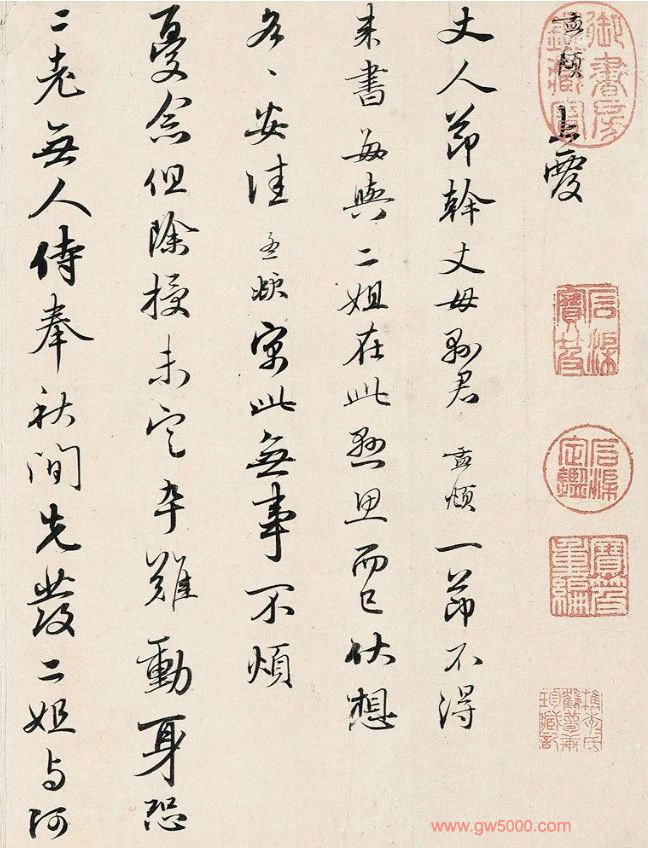 御書房
鑑藏寶
石渠
寶笈
石渠
定鑑
寶笈
重編
鶴夢軒
珍藏記
孟頫上覆
丈人節幹丈母縣君孟頫一節不得
来書每與二姐在此懸思而已伏想
各、安佳孟頫寓此無事不煩
憂念但除授未定卒難動身恐
二老無人侍奉秋間先發二姐与阿
www.gw5000.com